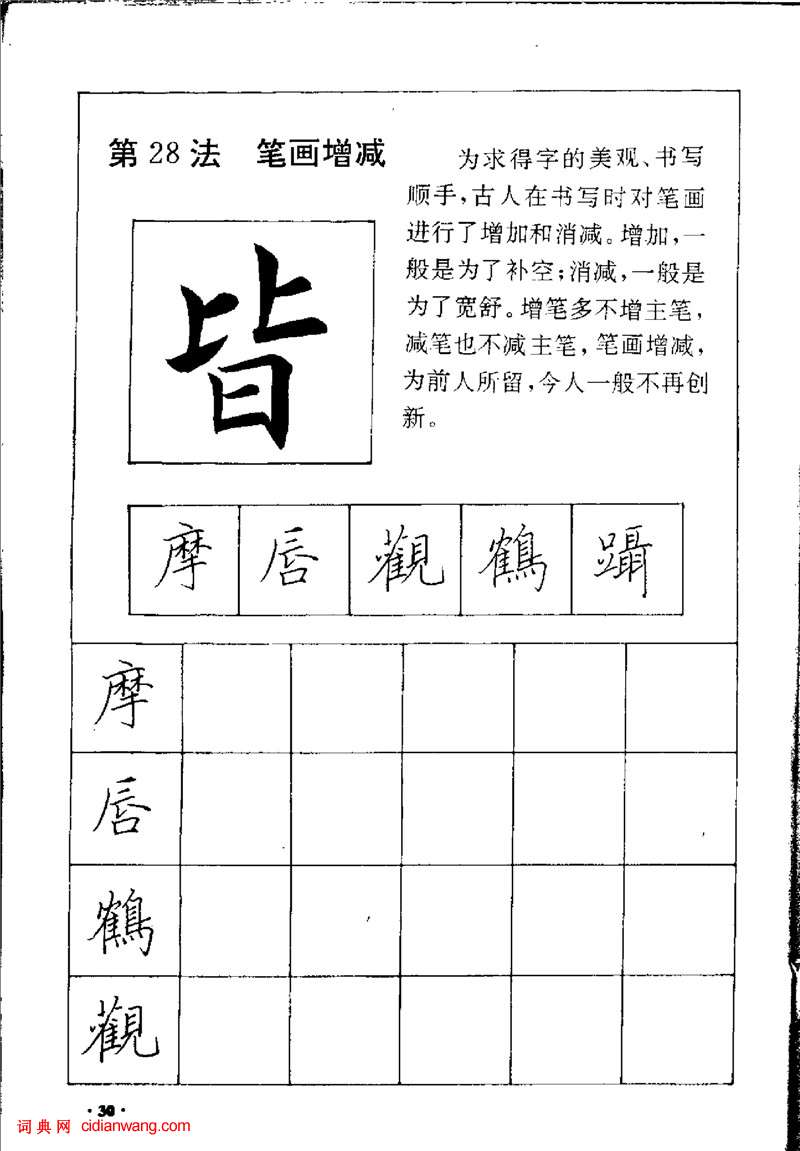 第28法 笔画增减
为求得字的美观、书写
顺手，古人在书写时对笔画
进行了增加和消减。增加，一
般是为了补空；消减，一般是
为了宽舒。增笔多不增主笔，
减笔也不减主笔，笔画增减，
为前人所留，今人一般不再创
新。
皆
摩 唇 觀 鶴 躡
摩
唇
鶴
觀
·30·
词典网 cidianwang.com